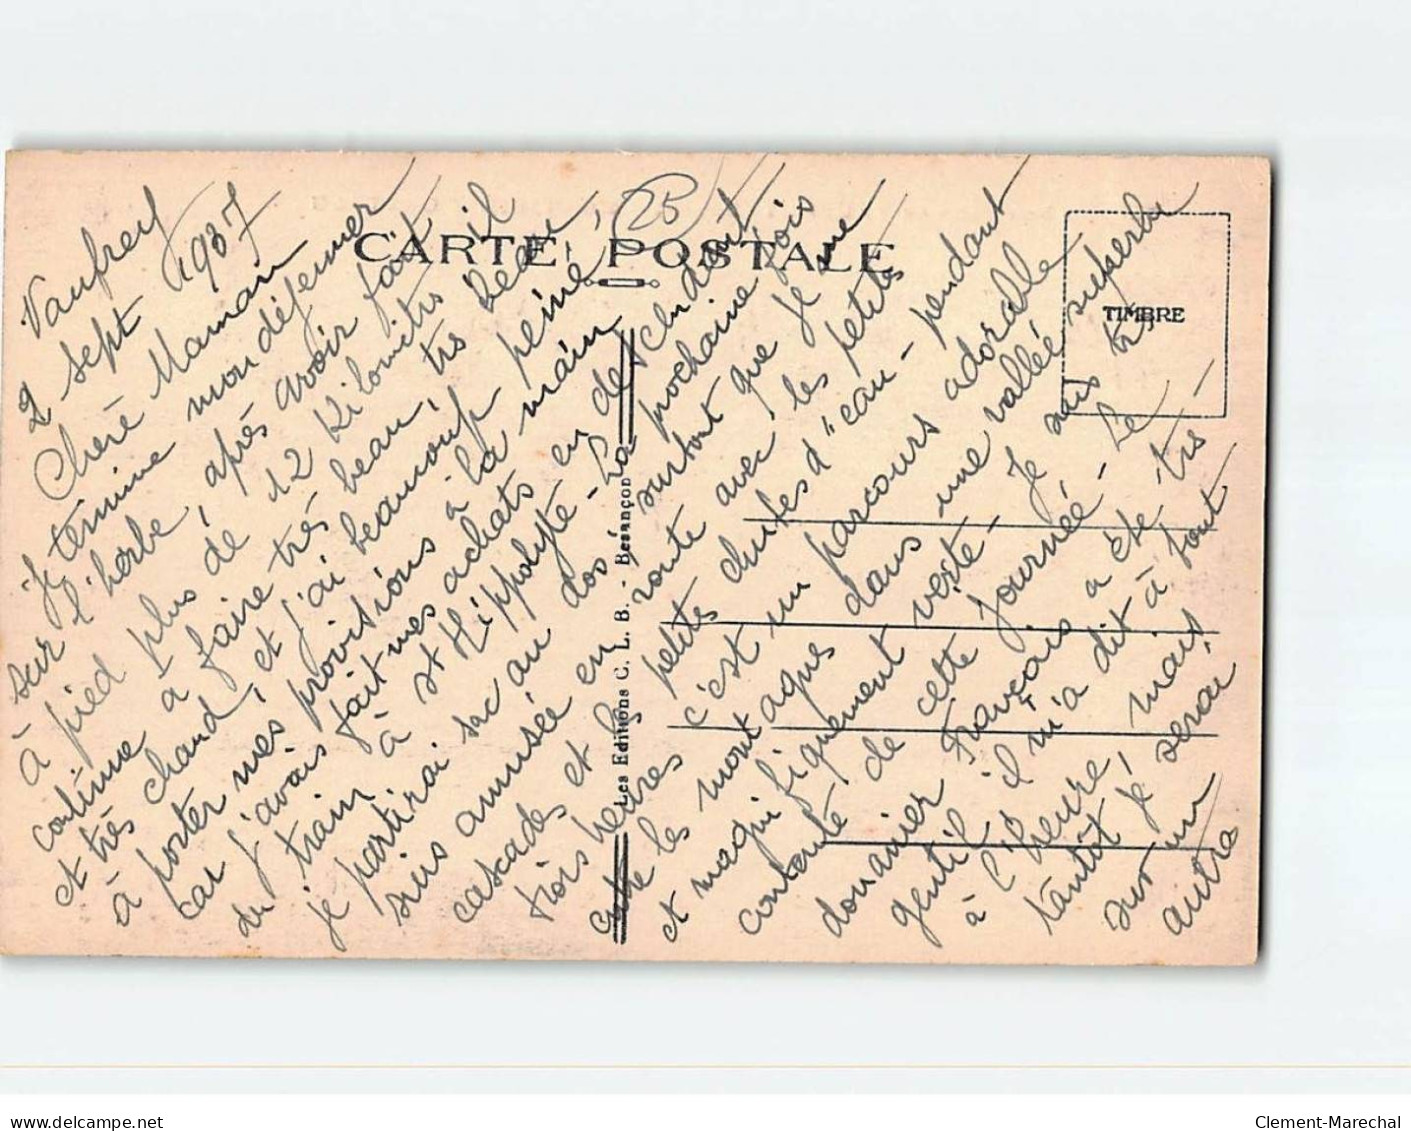 Vaufrey
2 sept 1937
Cherè Maman
Je termine mon déjeuner
sur l'herbe, après avoir fait
à pied plus de 12 Kilomètres il
continue a faire très beau, très beau
et très chaud, et j'ai beaucoup peiné,
à porter mes provisions à la main
car j'avais fait mes achats en descendant
du train à st Hippolyte - La prochaine fois
je partirai sac au dos surtout que je me
suis amusée en route avec les petites
cascades et petites chutes d'eau - pendant
trois heures c'est un parcours adorable
entre les montagnes dans une vallée superbe
et magnifiquement verte - Je suis très
contente de cette journée - Le
douanier Français a été très -
gentil il m'a dit à tout
à l'heure, mais
tantôt je serai
sur un
autre
25
CARTE POSTALE
TIMBRE
Les Editions C. L. B. - Besançon
Clement-Marechal
www.delcampe.net